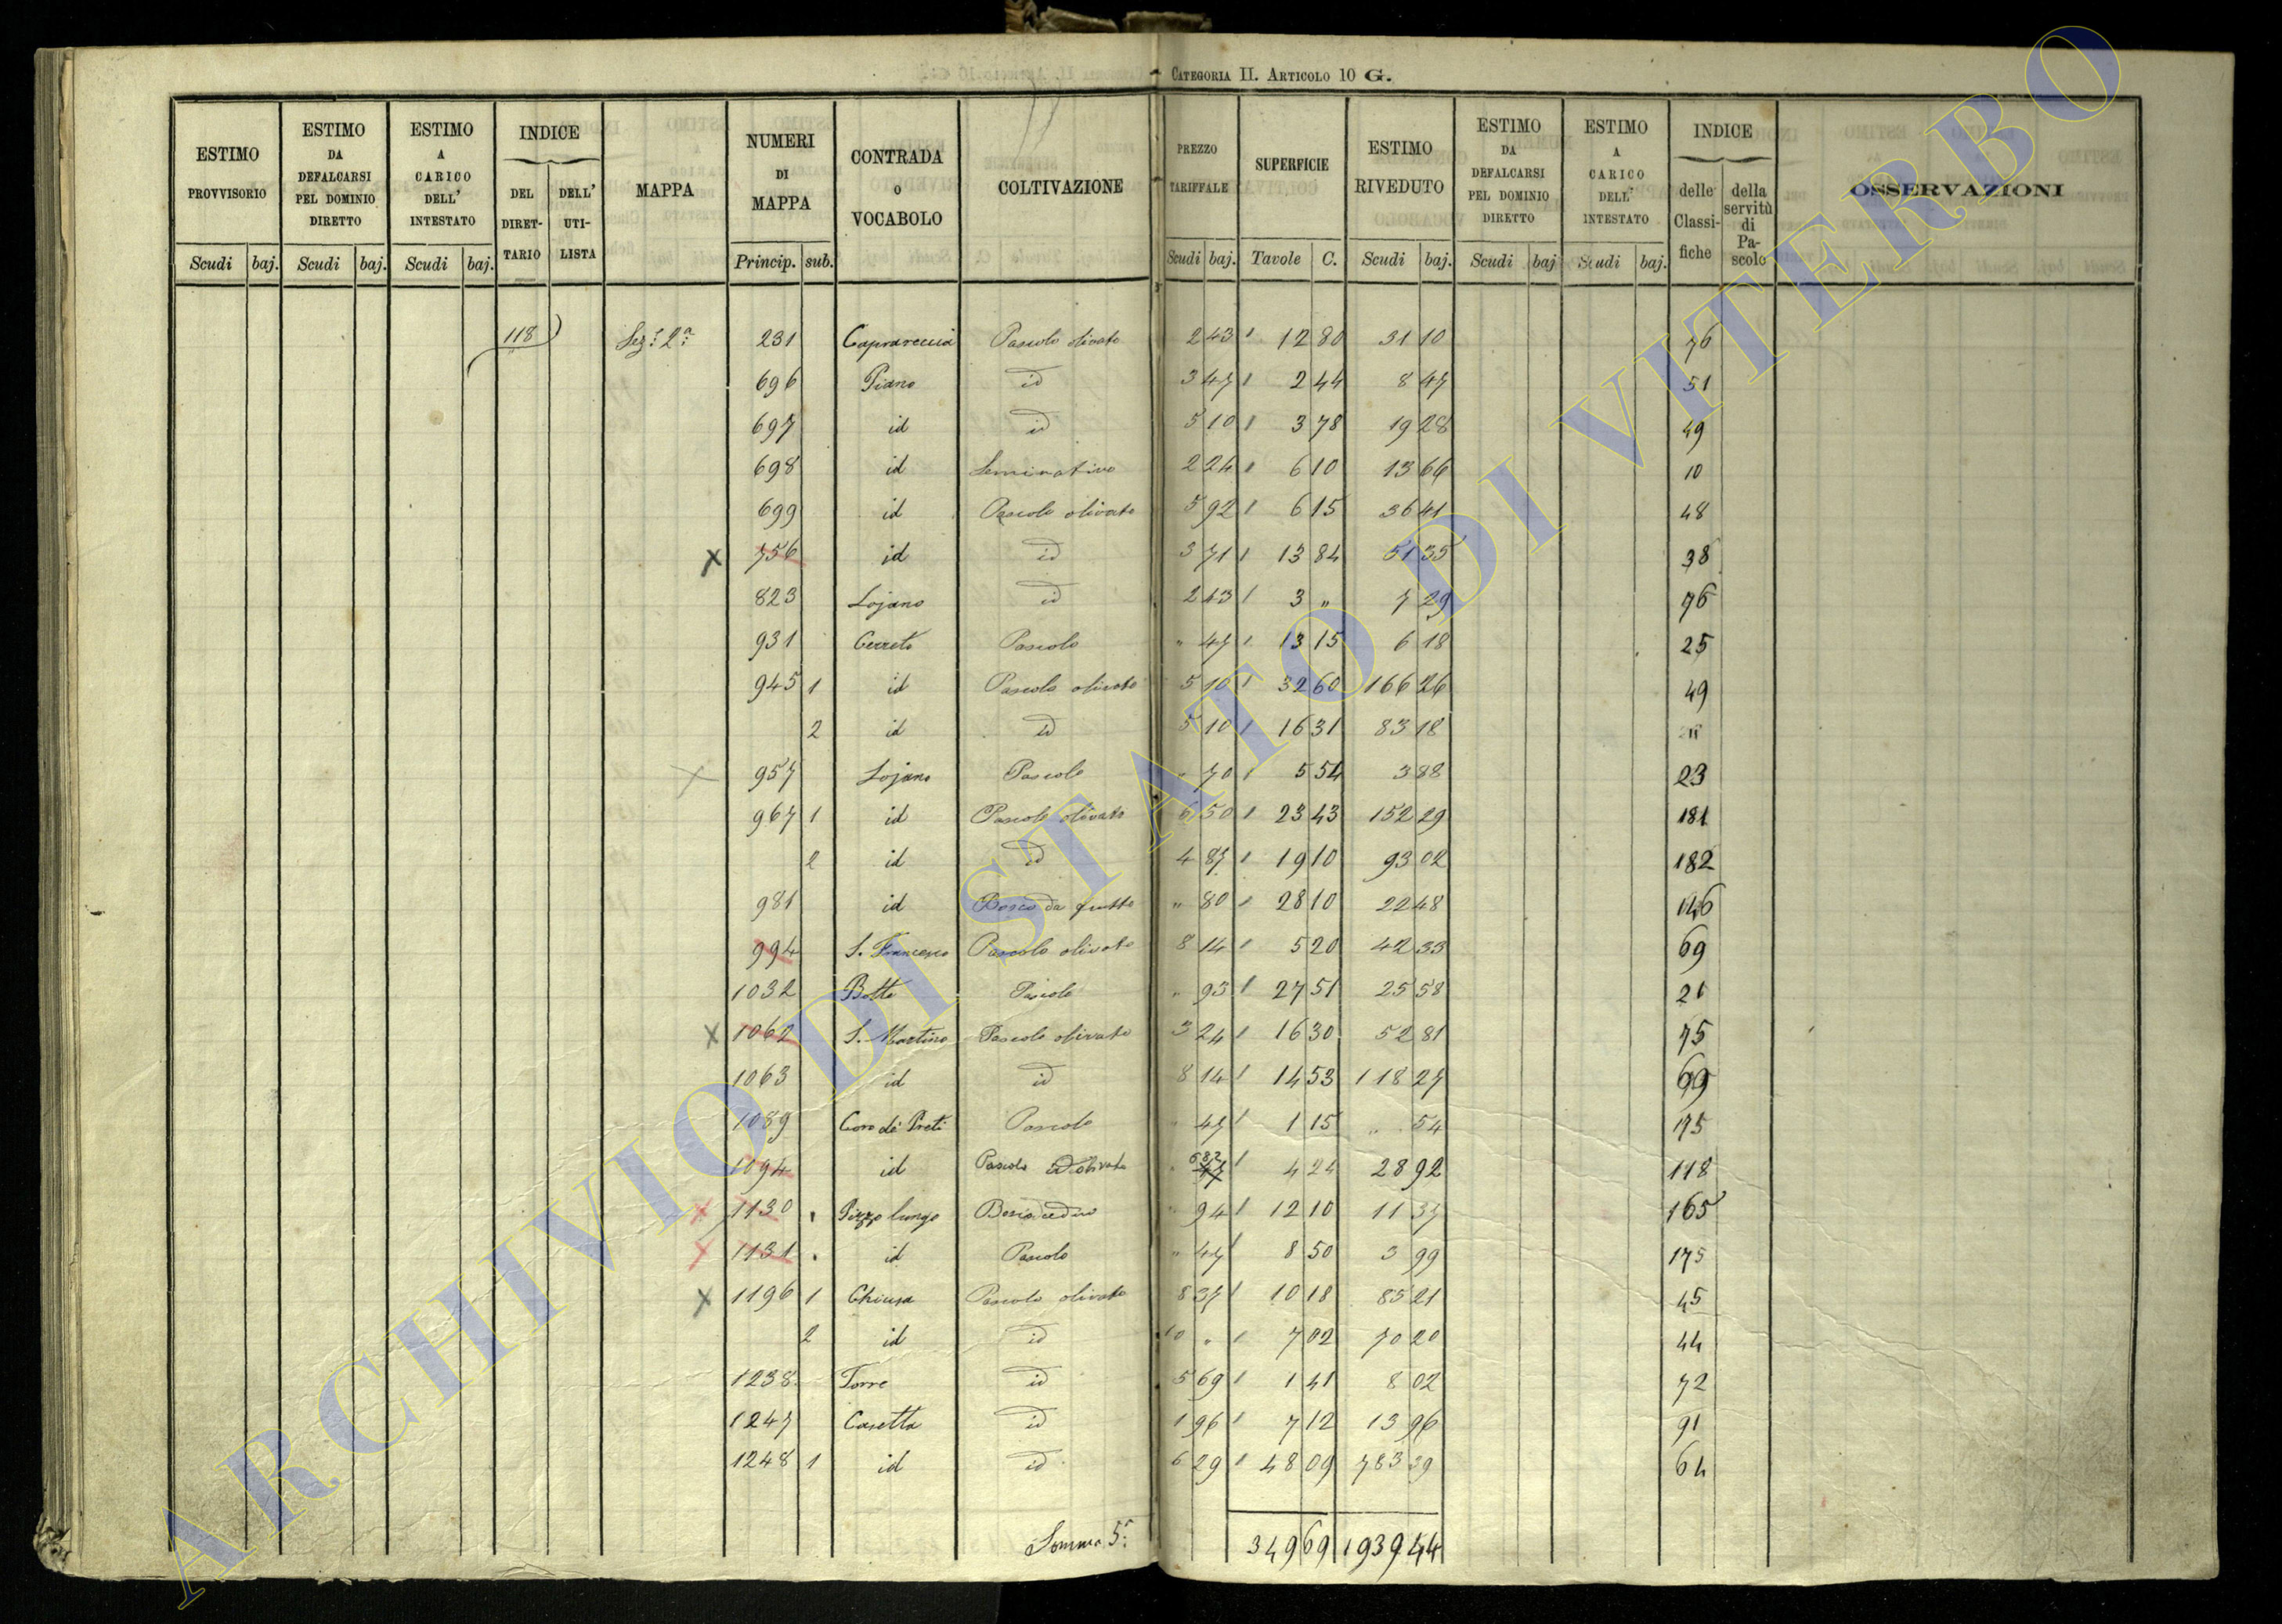 CATEGORIA II. ARTICOLO 10 G.
ESTIMO PROVVISORIO | ESTIMO DA DEFALCARSI PEL DOMINIO DIRETTO | ESTIMO A CARICO DELL' INTESTATO | INDICE DEL DIRETTARIO | DELL' UTILISTA | MAPPA | NUMERI DI MAPPA | CONTRADA O VOCABOLO | COLTIVAZIONE | PREZZO TARIFFALE | SUPERFICIE | ESTIMO RIVEDUTO | ESTIMO DA DEFALCARSI PEL DOMINIO DIRETTO | ESTIMO A CARICO DELL' INTESTATO | INDICE delle Classifiche | della servitù di Pascolo | OSSERVAZIONI
Scudi baj. Scudi baj. Scudi baj. Princip. sub. Scudi baj. Tavole C. Scudi baj. Scudi baj Scudi baj.
118 Sez: 2a 231 Caprareccia Pascolo olivato 2 43 12 80 31 10 76
696 Piano id 3 47 2 44 8 47 51
697 id id 5 10 3 78 19 28 49
698 id Seminativo 2 24 6 10 13 66 10
699 id Pascolo olivato 5 92 6 15 36 41 48
x 756 id id 3 71 13 84 51 35 38
823 Lojano id 2 43 3 " 7 29 76
931 Cerreto Pascolo " 47 13 15 6 18 25
945 1 id Pascolo olivato 5 10 32 60 166 26 49
2 id id 5 10 16 31 83 18
x 957 Lojano Pascolo " 70 5 54 3 88 23
967 1 id Pascolo olivato 6 50 23 43 152 29 181
2 id id 4 87 19 10 93 02 182
981 id Bosco da frutto " 80 28 10 22 48 146
994 S. Francesco Pascolo olivato 8 14 5 20 42 33 69
1032 Botte Pascolo " 93 27 51 25 58 21
x 1062 S. Martino Pascolo olivato 3 24 16 30 52 81 75
1063 id id 8 14 14 53 118 27 69
1089 Coro de' Preti Pascolo " 47 1 15 " 54 175
1094 id Pascolo id olivato 6 82 4 24 28 92 118
x 1130 Pizzo lungo Bosco ceduo " 94 12 10 11 37 165
x 1131 id Pascolo " 47 8 50 3 99 175
x 1196 1 Chiusa Pascolo olivato 8 37 10 18 85 21 45
2 id id 10 " 7 02 70 20 44
1238 Torre id 5 69 1 41 8 02 72
1247 Casetta id 1 96 7 12 13 96 91
1248 1 id id 6 29 48 09 783 39 64
Somma 5a 349 69 1939 44
ARCHIVIO DI STATO DI VITERBO